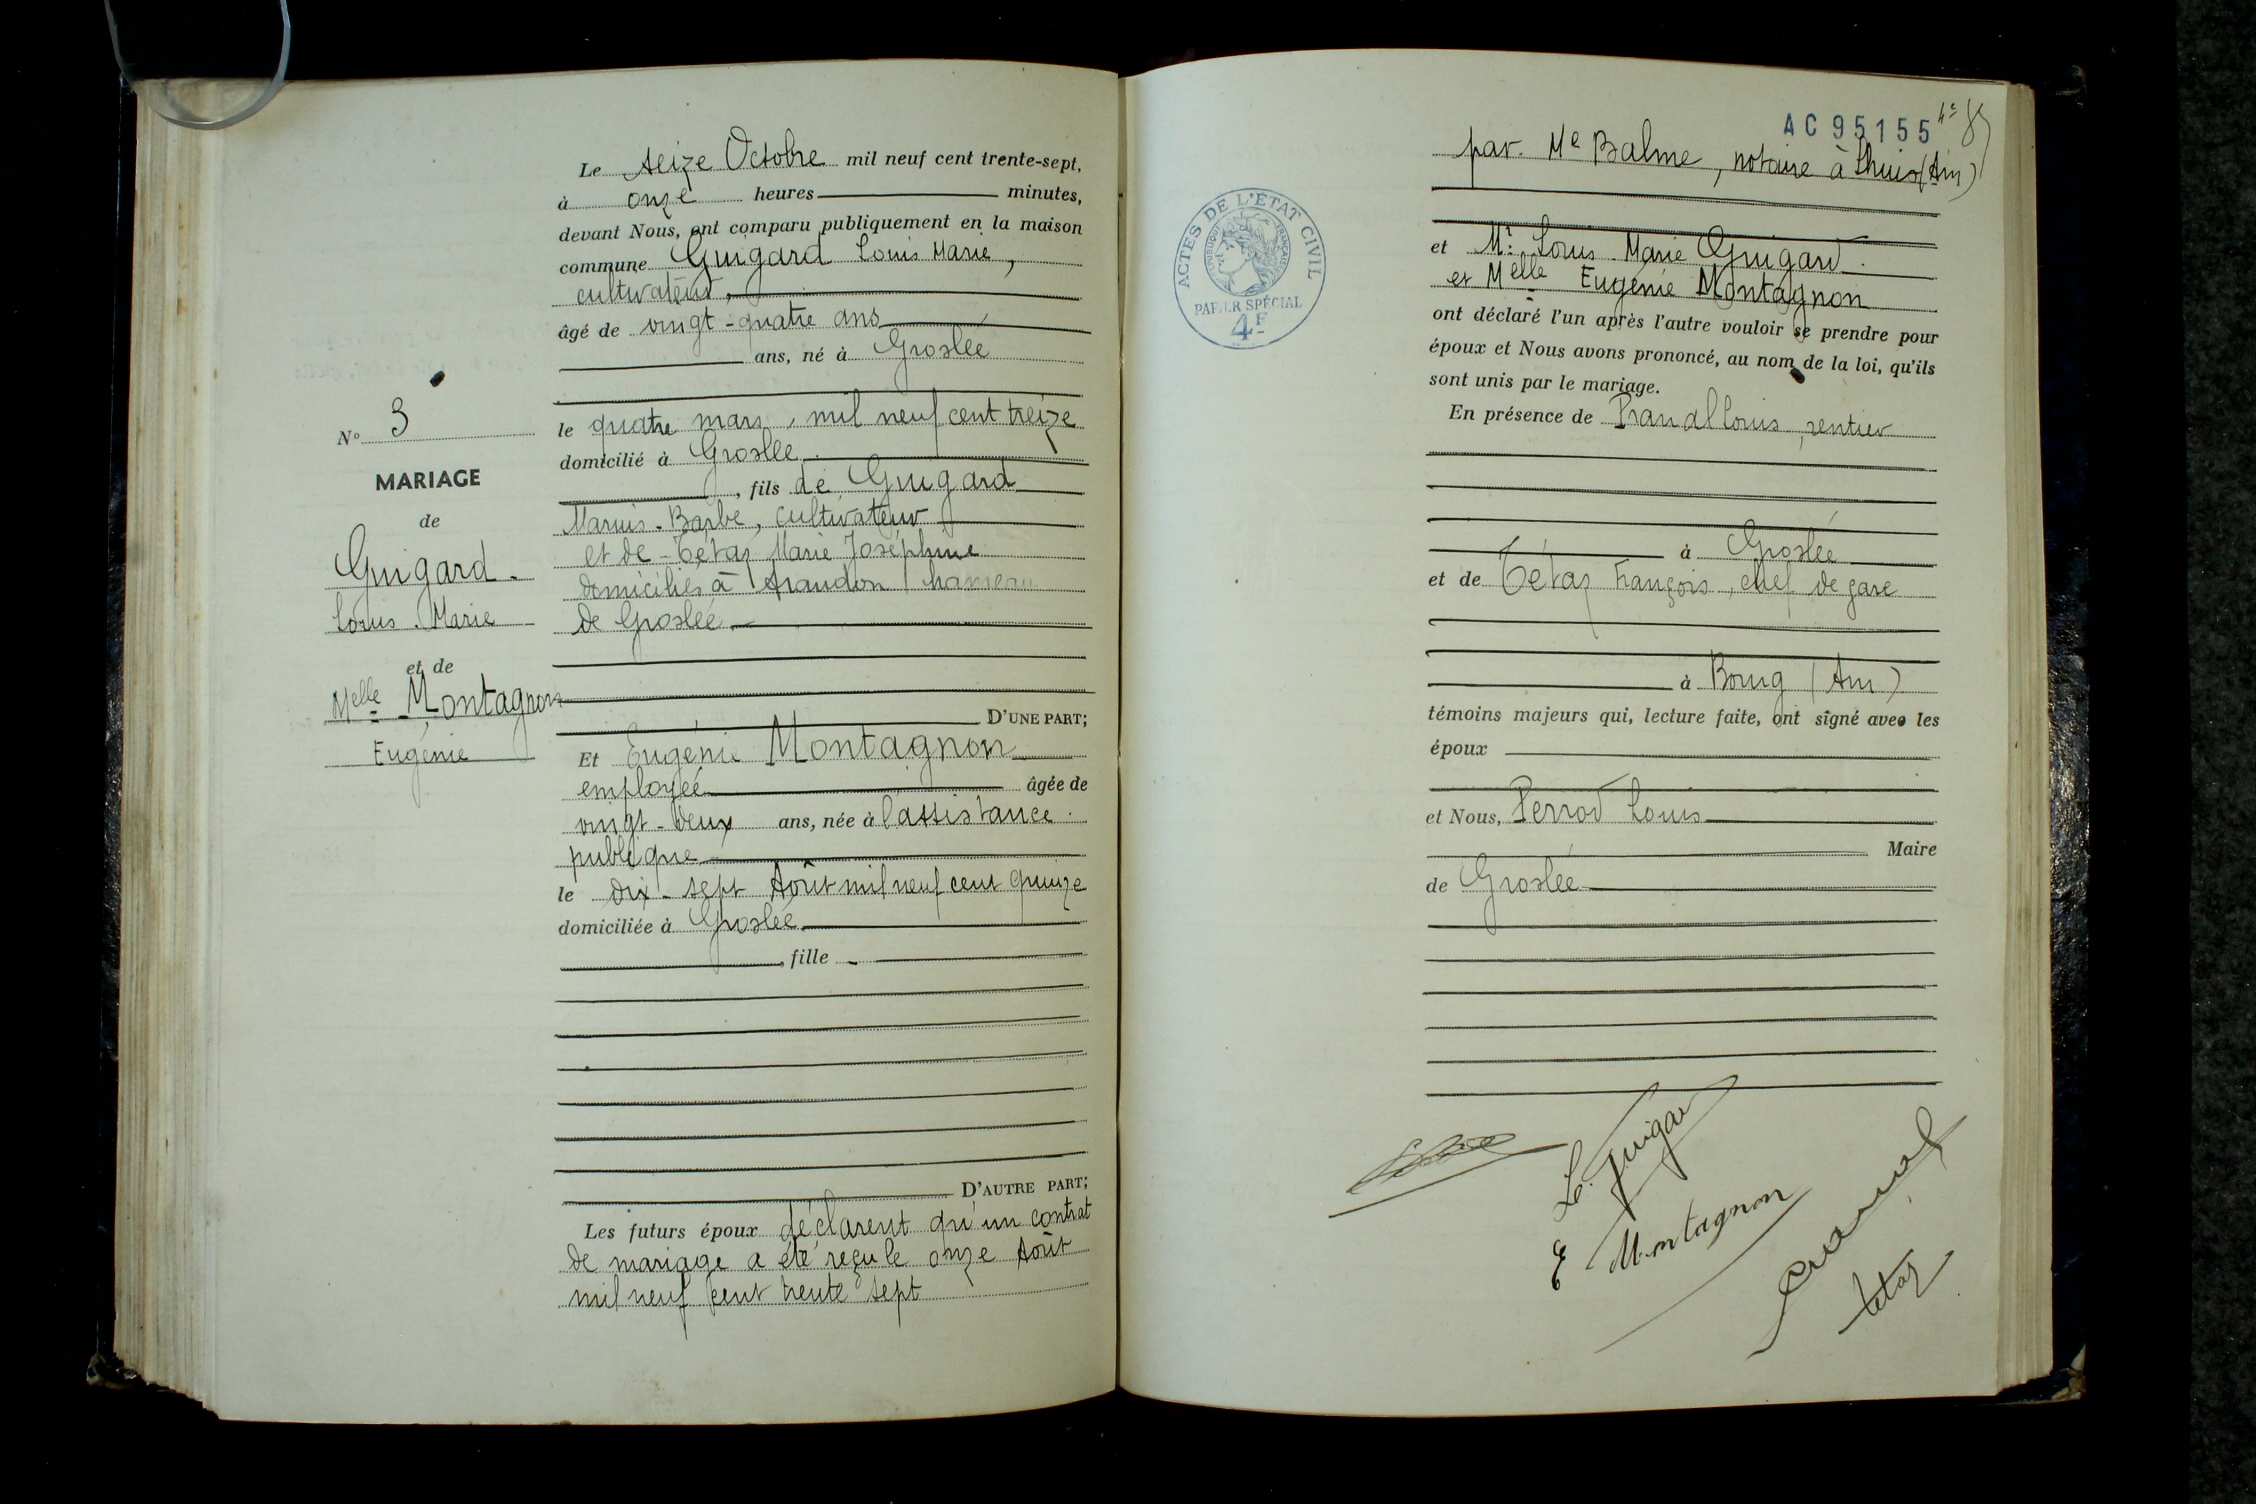 N° 3
MARIAGE
de
Guigard
Louis Marie
et de
Melle Montagnon
Eugénie
Le seize Octobre mil neuf cent trente-sept,
à onze heures minutes,
devant Nous, ont comparu publiquement en la maison
commune Guigard Louis Marie,
cultivateur,
âgé de vingt-quatre ans
ans, né à Groslée
le quatre mars, mil neuf cent treize
domicilié à Groslée
, fils de Guigard
Barbe, cultivateur
et de Tétaz Marie Joséphine
domiciliés à Arandon hameau
de Groslée
D'UNE PART;
Et Eugénie Montagnon
employée âgée de
vingt-deux ans, née à l'assistance
publique
le dix-sept Août mil neuf cent quinze
domiciliée à Groslée
, fille
D'AUTRE PART;
Les futurs époux déclarent qu'un contrat
de mariage a été reçu le onze Août
mil neuf cent trente sept
AC 95155
par Me Balme, notaire à Lhuis (Ain)
ACTES DE L'ÉTAT CIVIL
RÉPUBLIQUE FRANÇAISE
PAPIER SPÉCIAL
4F
et Mr Louis Marie Guigard
et Melle Eugénie Montagnon
ont déclaré l'un après l'autre vouloir se prendre pour
époux et Nous avons prononcé, au nom de la loi, qu'ils
sont unis par le mariage.
En présence de Prandl Louis, rentier
à Groslée
et de Tétaz François, chef de gare
à Bourg (Ain)
témoins majeurs qui, lecture faite, ont signé avec les
époux
et Nous, Perrod Louis
Maire
de Groslée
L. Guigard
E Montagnon
Tétaz